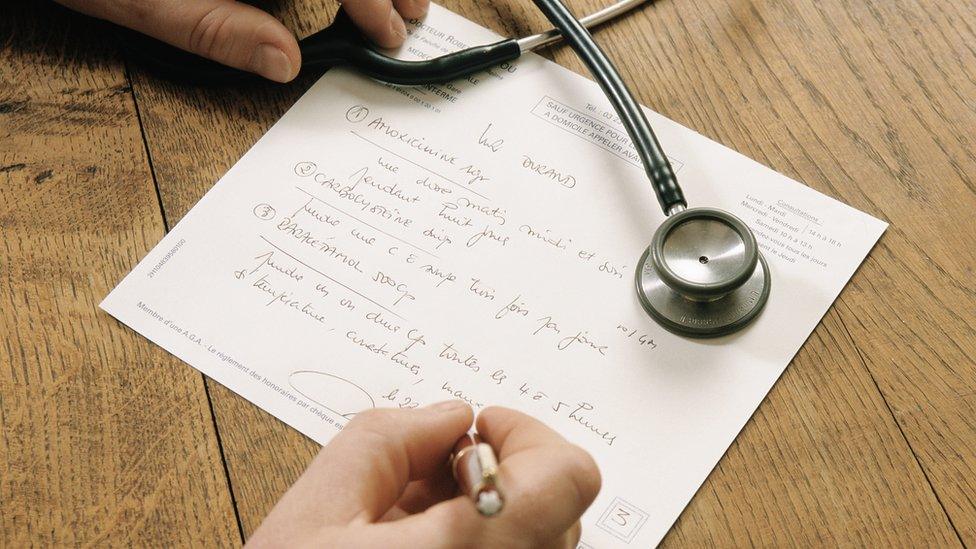 DOCTEUR ROBE OU
de la Faculté de
MEDECI ALE
INTERME
Tel. : 03 2
SAUF URGENCE POUR
A DOMICILE APPELER AVA
Consultations
Lundi - Mardi
Mercredi - Vendredi 14 h à 18 h
Samedi 10 h à 13 h
endez-vous tous les jours
ment le Jeudi
DURAND
① AMOXICILLINE
une dose matin midi et soir
pendant huit jours
② CARBOCYSTEINE
prendre une C à soupe trois fois par jour
③ PARACETAMOL 500
prendre un ou deux cp toutes les 4 à 5 heures
si température, courbatures,
le 22
2H104839580100
Membre d'une A.G.A. - Le règlement des honoraires par chèque es
3